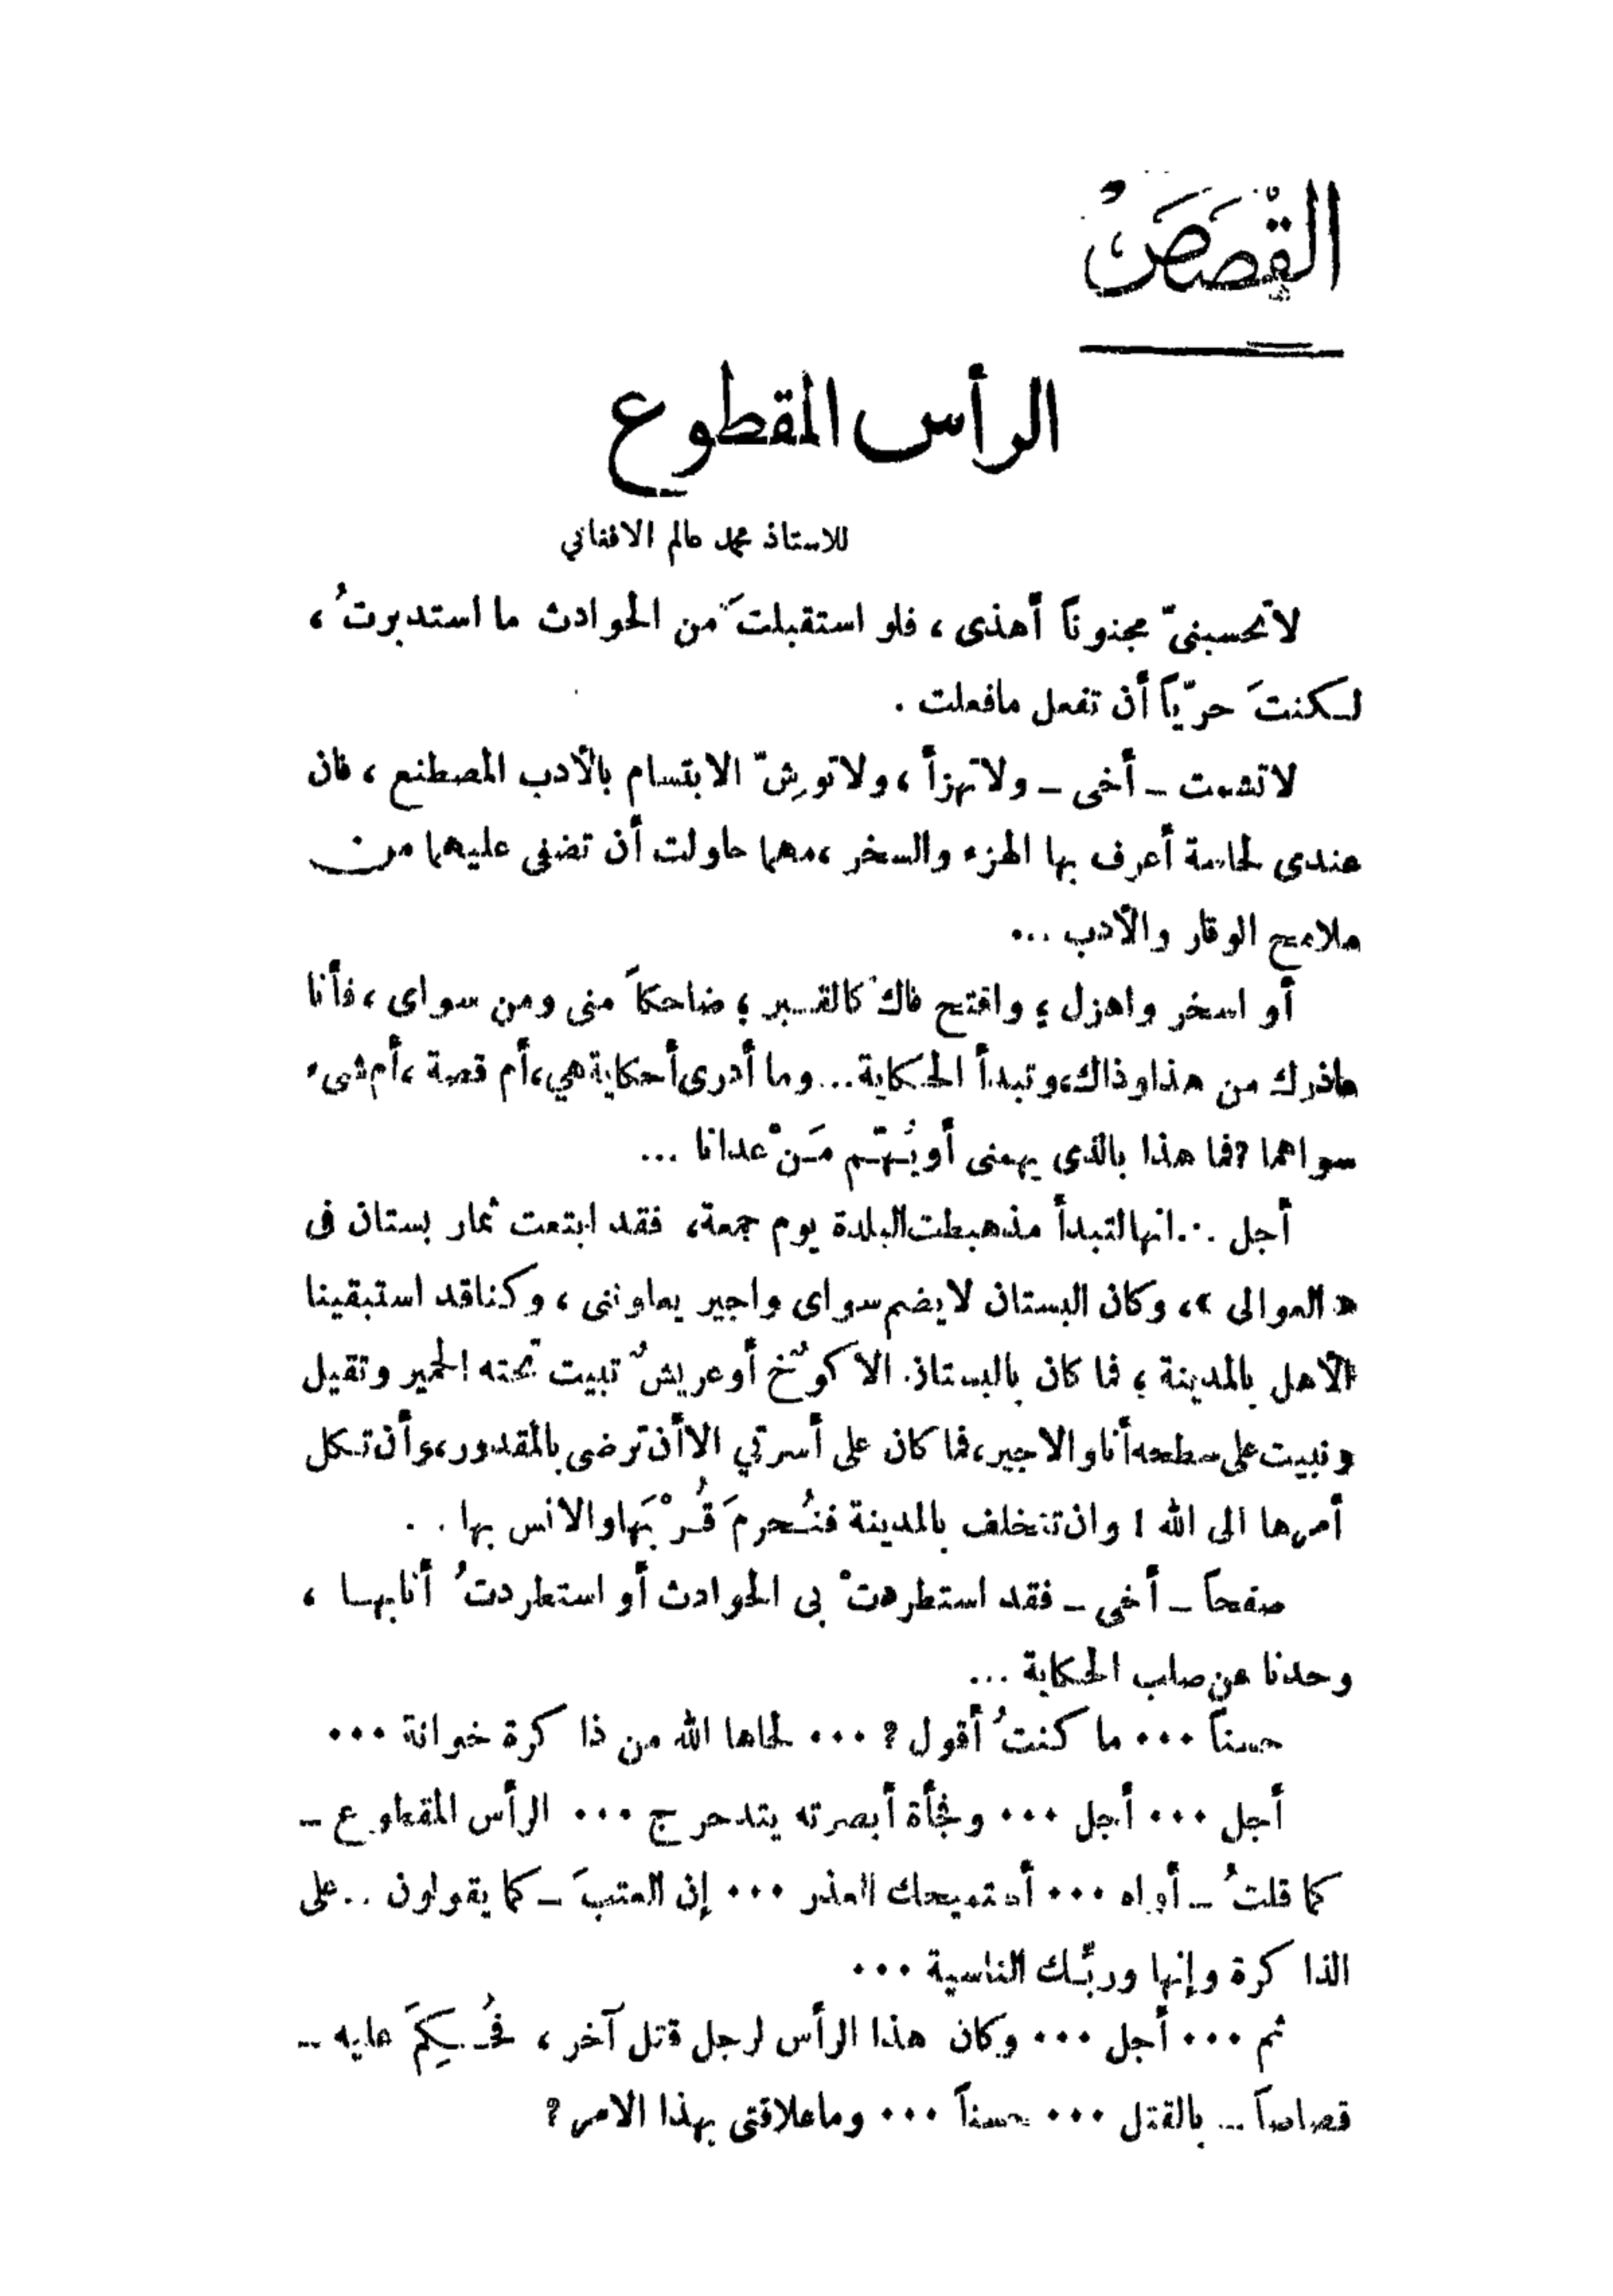 القَصَصُ
الرأس المقطوع
للاستاذ محمد عالم الافغاني
لاتحسبنيّ مجنوناً أهذى ، فلو استقبلتَ من الحوادث ما استدبرتُ ،
لكنتَ حريّاً أن تفعل مافعلت .
لاتشمت ـ أخى ـ ولاتهزأ ، ولاتوشِّ الابتسام بالأدب المصطنع ، فان
عندى لحاسة أعرف بها الهزء والسخر ، مهما حاولت أن تضفى عليهما من
ملامح الوقار والأدب ...
أو اسخر واهزل ؛ وافتح فاك كالقبر ؛ ضاحكاً منى ومن سواى ، فأنا
عاذرك من هذا وذاك، وتبدأ الحكاية... وما أدرى أحكاية هي، أم قصة ، أم شىء
سواهما ? فما هذا بالذى يهمنى أو يُهمّ مَنْ عدانا ...
أجل ... انها لتبدأ مذ هبطت البلدة يوم جمعة، فقد ابتعت ثمار بستان فى
« العوالى »، وكان البستان لايضم سواى واجير يعاوننى ، وكنا قد استبقينا
الأهل بالمدينة ؛ فما كان بالبستان الا كوُخ أو عريشٌ تبيت تحته الحمير وتقيل
ونبيت على سطحه أنا والاجير ، فما كان على أسرتي الا أن ترضى بالمقدور، وأن تكل
أمرها الى الله ! وان تتخلف بالمدينة فنُحرمَ قُرْبَها والانس بها . .
صفحاً ـ أخى ـ فقد استطردتْ بى الحوادث أو استطردتُ أنا بها ،
وحدنا عن صلب الحكاية ...
حسناً ... ما كنتُ أقول ? ... لحاها الله من ذا كرة خوانة ...
أجل ... أجل ... وفجأة أبصرته يتدحرج ... الرأس المقطوع ـ
كما قلتُ ـ أواه ... أستميحك العذر ... إن العتبَ ـ كما يقولون .. على
الذا كرة وإنها وربّك الناسية ...
ثم ... أجل ... وكان هذا الرأس لرجل قتل آخر ، فحُكِمَ عليه ـ
قصاصاً ـ بالقتل ... حسناً ... وماعلاقتى بهذا الامر ?